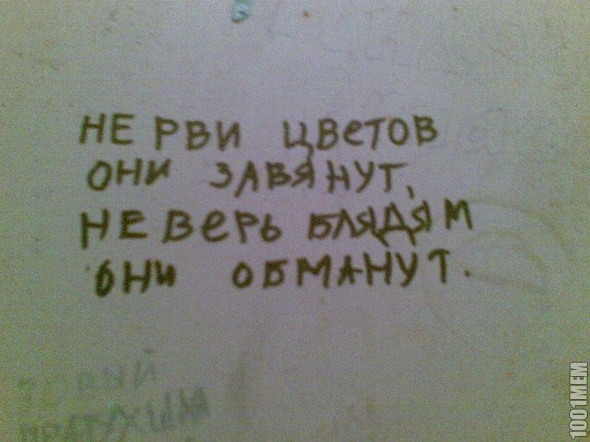 НЕ РВИ ЦВЕТОВ
ОНИ ЗАВЯНУТ,
НЕ ВЕРЬ БЛЯДЯМ
ОНИ ОБМАНУТ.
1001MEM